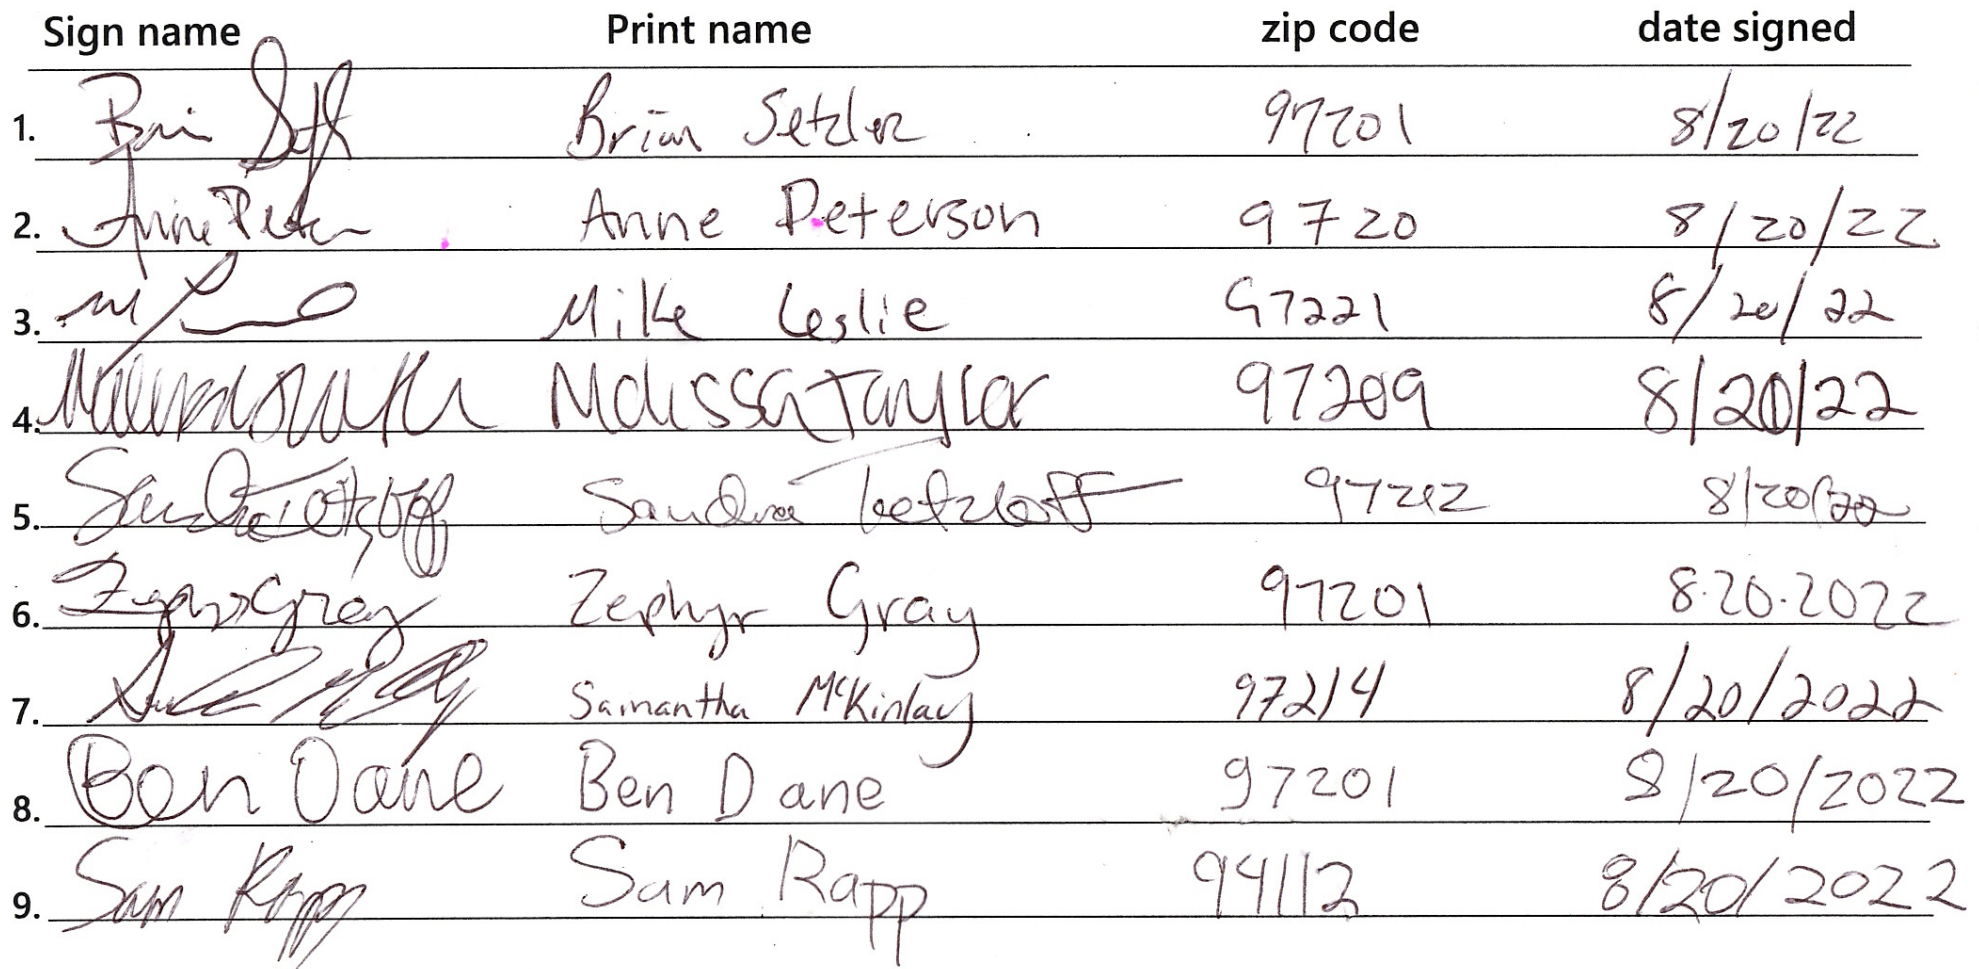 Sign name Print name zip code date signed
1. Brian Setzler 97201 8/20/22
2. Anne Peter Anne Peterson 9720 8/20/22
3. Mike Leslie 97221 8/20/22
4. Melissa Taylor 97209 8/20/22
5. Sandra 97212 8/20/22
6. Zephyr Gray Zephyr Gray 97201 8.20.2022
7. Samantha McKinlay 97214 8/20/2022
8. Ben Dane Ben Dane 97201 8/20/2022
9. Sam Rapp Sam Rapp 94112 8/20/2022